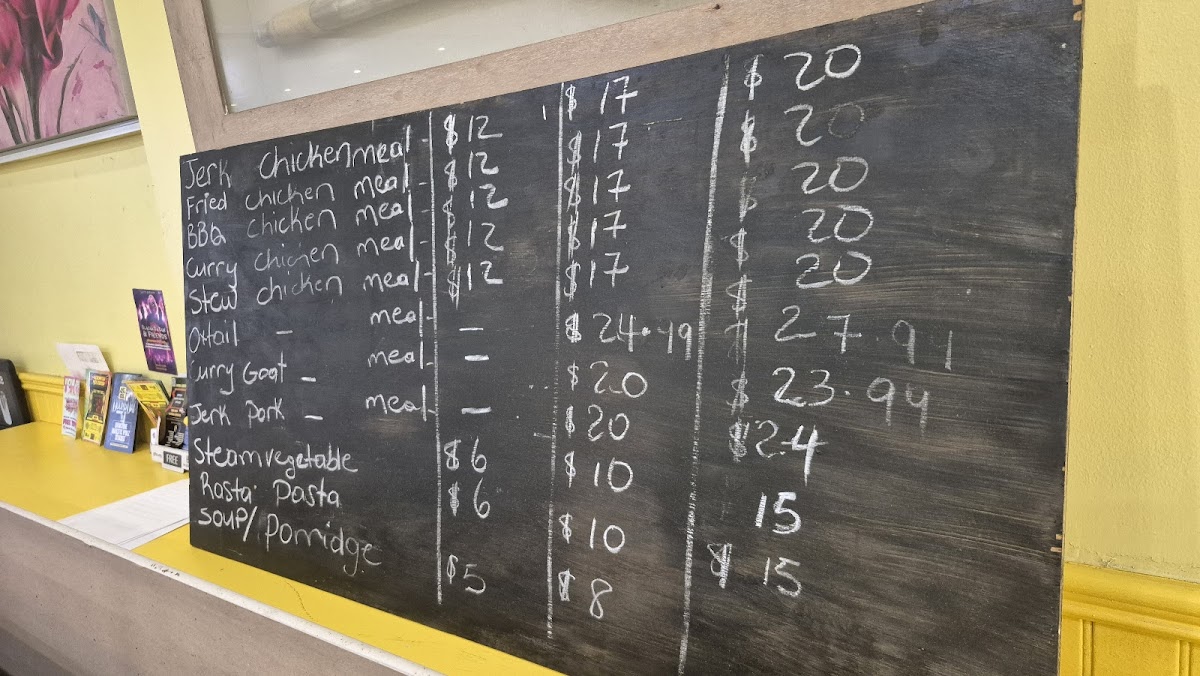 Jerk chicken meal - $ 12 $ 17 $ 20
Fried chicken meal - $ 12 $ 17 $ 20
BBQ chicken meal - $ 12 $ 17 $ 20
Curry chicken meal - $ 12 $ 17 $ 20
Stew chicken meal - $ 12 $ 17 $ 20
Oxtail - meal - $ 24.49 $ 27.91
Curry Goat - meal - $ 20 $ 23.94
Jerk pork - meal - $ 20 $ 24
Steam vegetable $ 6 $ 10 15
Rasta Pasta $ 6 $ 10 $ 15
soup/ Porridge $ 5 $ 8
FREE